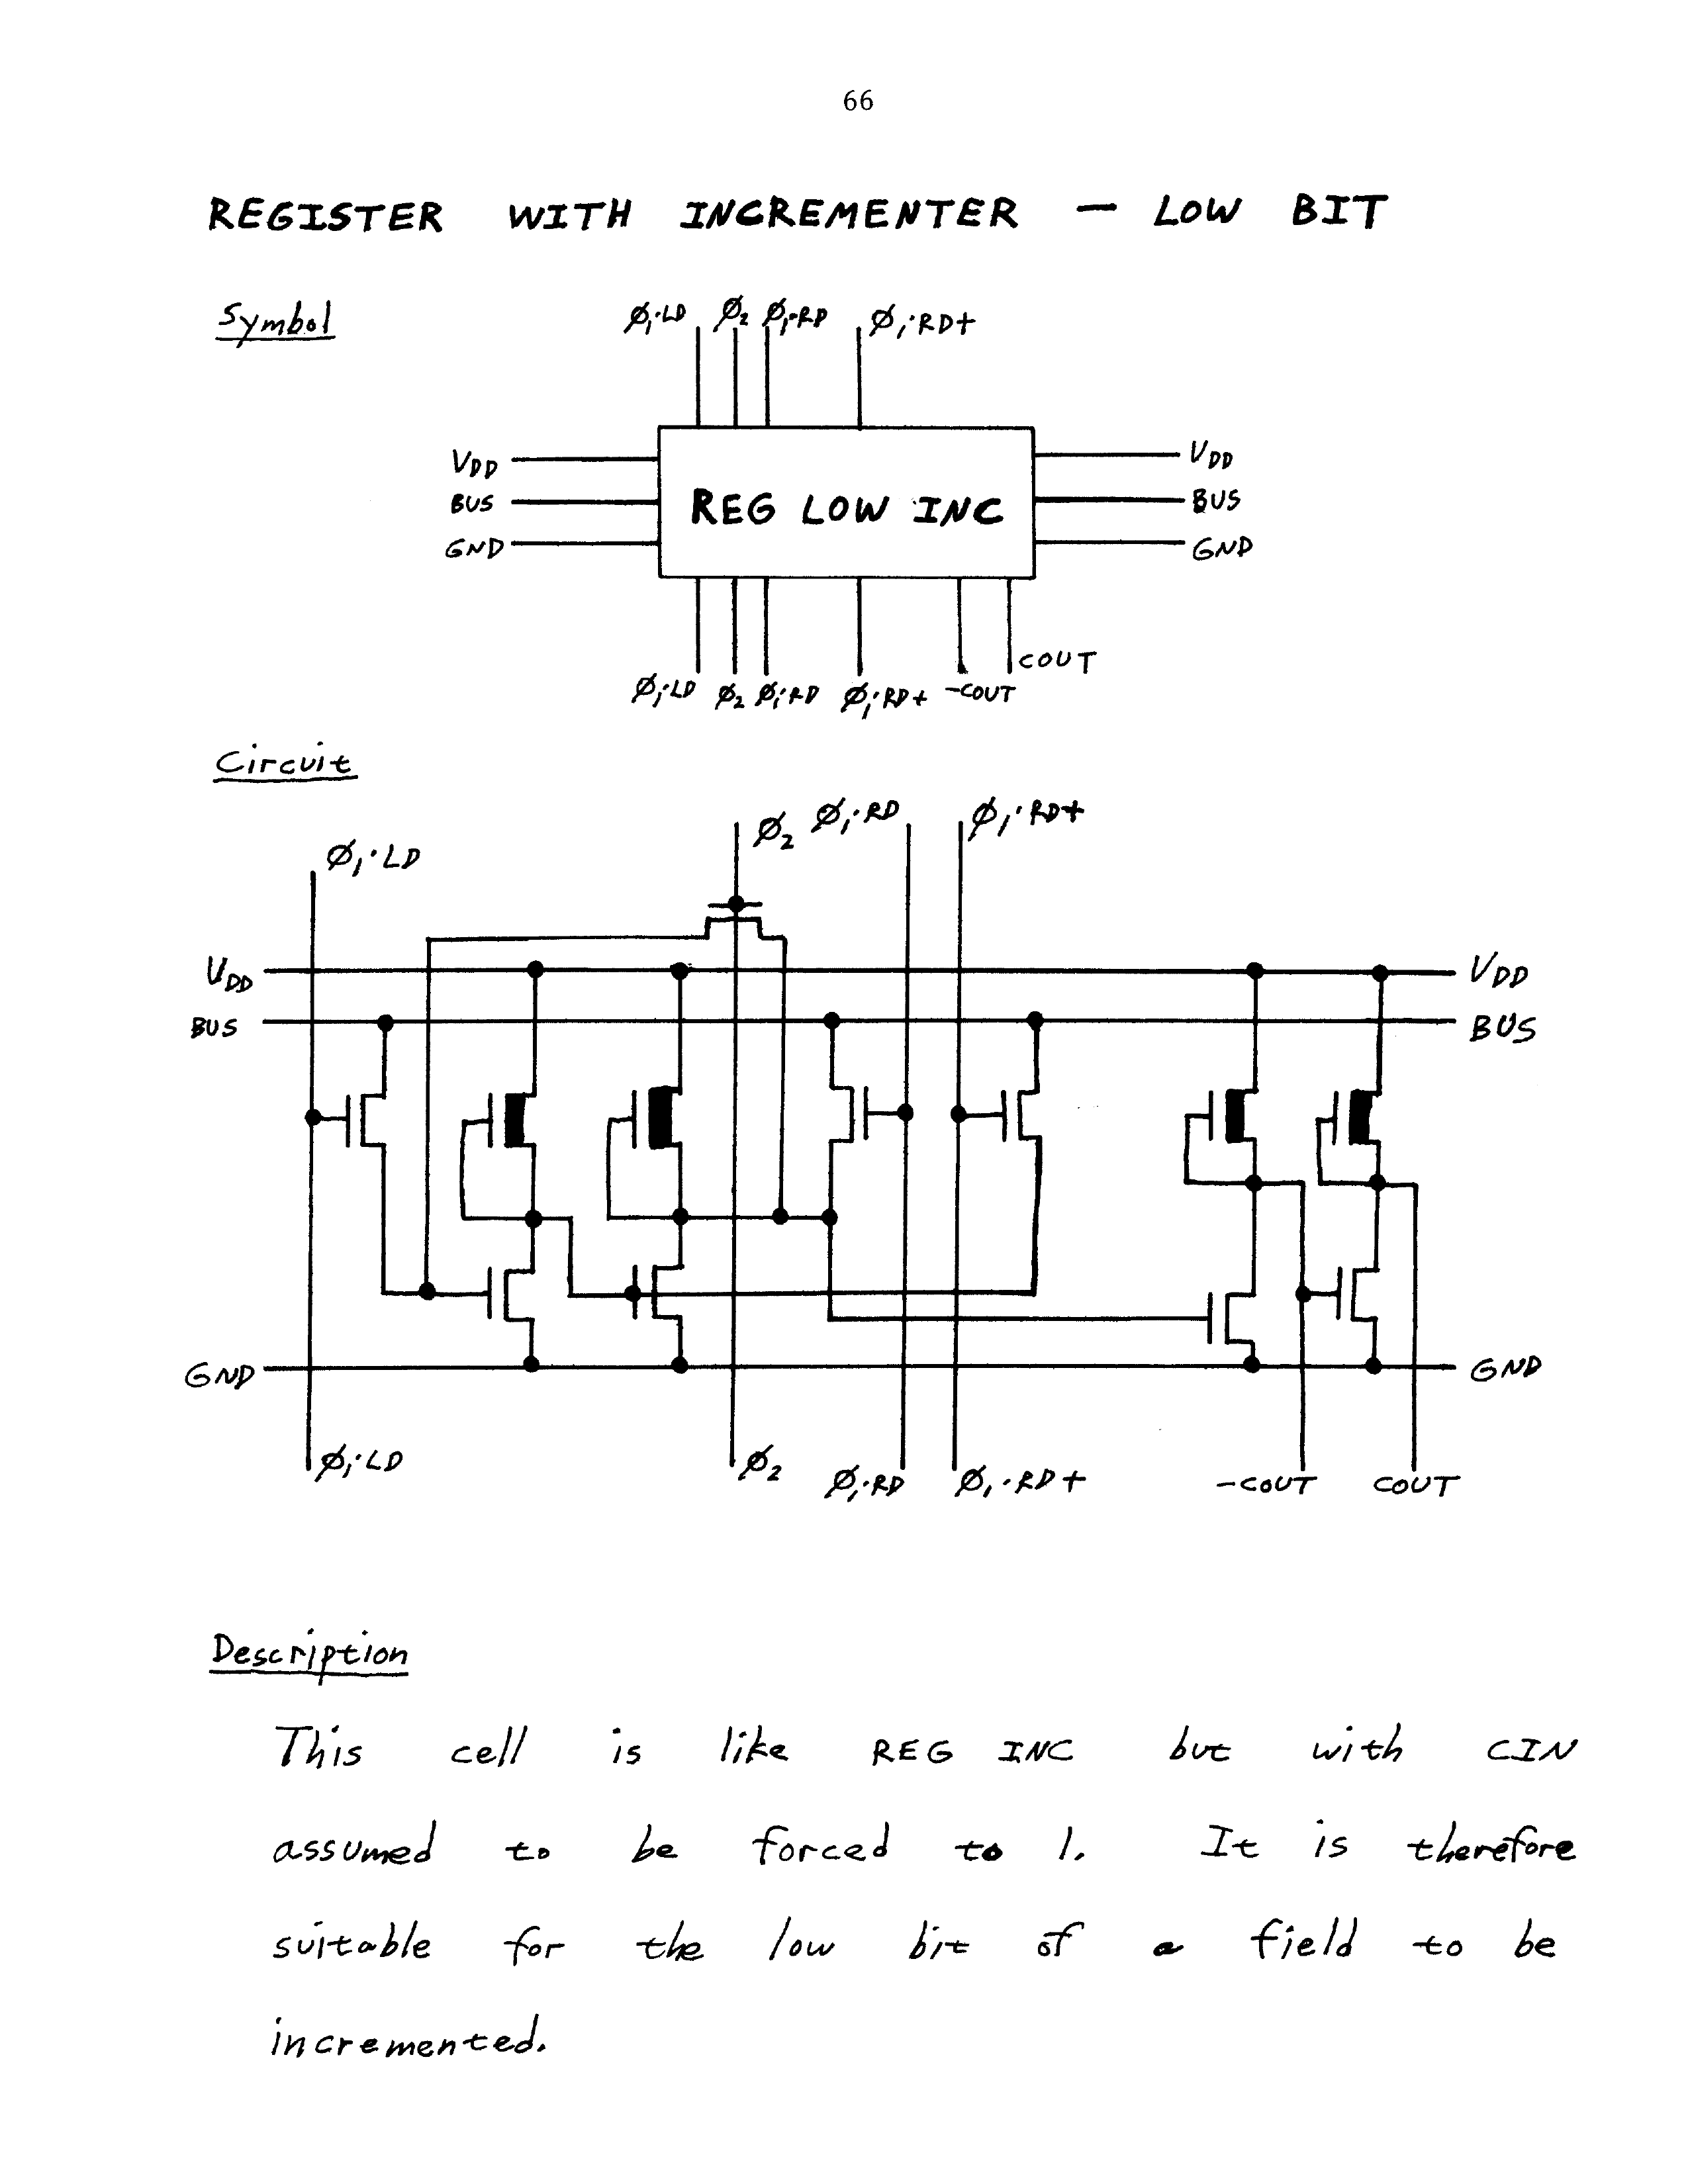 66
REGISTER WITH INCREMENTER — LOW BIT
Symbol
Ø₁·LD Ø₂ Ø₁·RD Ø₁·RD+
VDD VDD
BUS REG LOW INC BUS
GND GND
COUT
Ø₁·LD Ø₂ Ø₁·RD Ø₁·RD+ -COUT
Circuit
Ø₁·LD Ø₂ Ø₁·RD Ø₁·RD+
VDD VDD
BUS BUS
GND GND
Ø₁·LD Ø₂ Ø₁·RD Ø₁·RD+ -COUT COUT
Description
This cell is like REG INC but with CIN
assumed to be forced to 1. It is therefore
suitable for the low bit of a field to be
incremented.